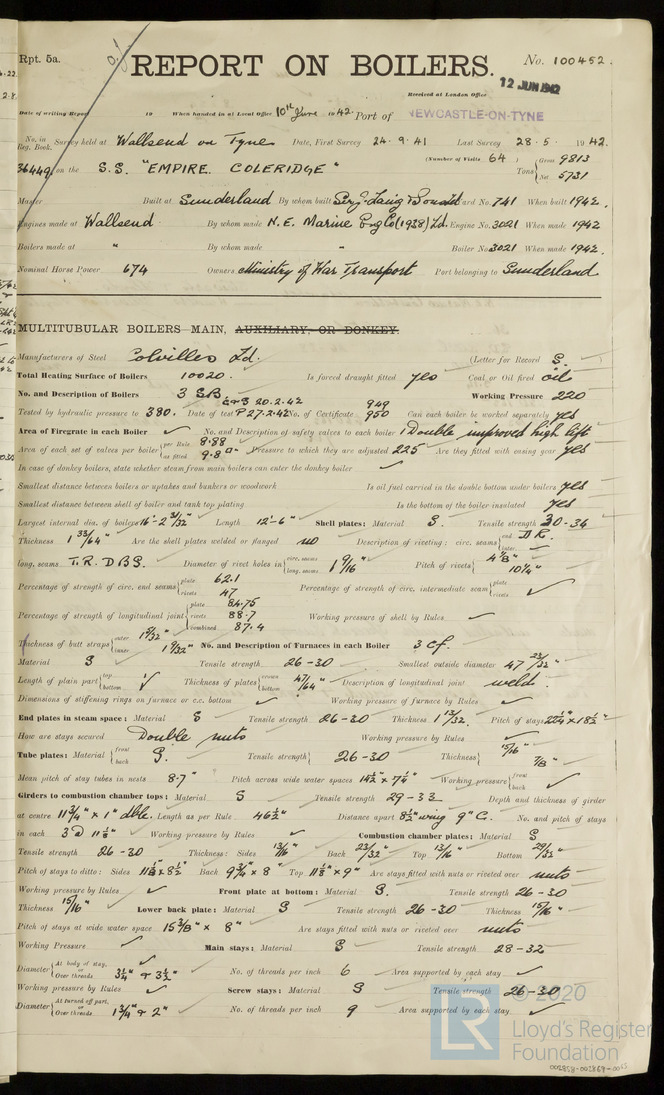 Rpt. 5a.
REPORT ON BOILERS.
No. 100452.
12 JUN 1942
Received at London Office
Date of writing Report 19 When handed in at Local Office 10th June 1942. Port of NEWCASTLE-ON-TYNE
No. in Reg. Book. Survey held at Wallsend on Tyne Date, First Survey 24.9.41 Last Survey 28.5. 1942.
(Number of Visits 64)
36449 on the S.S. "EMPIRE COLERIDGE" Tons { Gross 9813 Net 5731
Master Built at Sunderland By whom built Yard No. 741 When built 1942.
Engines made at Wallsend By whom made N.E. Marine Eng Co (1938) Ld. Engine No. 3021 When made 1942
Boilers made at " By whom made " Boiler No. 3021 When made 1942.
Nominal Horse Power 674 Owners Ministry of War Transport Port belonging to Sunderland
MULTITUBULAR BOILERS MAIN, AUXILIARY, OR DONKEY.
Manufacturers of Steel Colvilles Ld. (Letter for Record S.)
Total Heating Surface of Boilers 10020. Is forced draught fitted yes Coal or Oil fired oil
No. and Description of Boilers 3 SB Working Pressure 220
Tested by hydraulic pressure to 380. Date of test 20.2.42 27.2.42 No. of Certificate 949 950 Can each boiler be worked separately yes
Area of Firegrate in each Boiler ✓ No. and Description of safety valves to each boiler 1 Double improved high lift
Area of each set of valves per boiler { per Rule 8.88 as fitted 9.8 Pressure to which they are adjusted 225 Are they fitted with easing gear yes
In case of donkey boilers, state whether steam from main boilers can enter the donkey boiler ✓
Smallest distance between boilers or uptakes and bunkers or woodwork Is oil fuel carried in the double bottom under boilers yes
Smallest distance between shell of boiler and tank top plating Is the bottom of the boiler insulated yes
Largest internal dia. of boilers 16'-2 3/32" Length 12'-6" Shell plates: Material S. Tensile strength 30-34
Thickness 1 33/64" Are the shell plates welded or flanged no Description of riveting: circ. seams { end D.R. inter.
long. seams T.R.D.B.S. Diameter of rivet holes in { circ. seams long. seams 1 9/16" Pitch of rivets { 4 1/8" 10 1/4"
Percentage of strength of circ. end seams { plate 62.1 rivets 47 Percentage of strength of circ. intermediate seam { plate rivets ✓
Percentage of strength of longitudinal joint { plate 84.75 rivets 88.7 combined 87.4 Working pressure of shell by Rules ✓
Thickness of butt straps { outer 1 5/32" inner 1 9/32" No. and Description of Furnaces in each Boiler 3 Cf.
Material S Tensile strength 26-30 Smallest outside diameter 47 23/32"
Length of plain part { top bottom ✓ Thickness of plates { crown bottom 47/64" Description of longitudinal joint weld.
Dimensions of stiffening rings on furnace or c.c. bottom ✓ Working pressure of furnace by Rules ✓
End plates in steam space: Material S Tensile strength 26-30 Thickness 1 13/32. Pitch of stays 22 1/4" x 18 1/2"
How are stays secured Double nuts Working pressure by Rules ✓
Tube plates: Material { front back S. Tensile strength } 26-30 Thickness { 15/16" 7/8"
Mean pitch of stay tubes in nests 8.7" Pitch across wide water spaces 14 1/2" x 7 1/4" Working pressure { front back ✓
Girders to combustion chamber tops: Material S Tensile strength 29-33 Depth and thickness of girder
at centre 11 3/4" x 1" dble. Length as per Rule 46 1/2" Distance apart 8 1/2" wing 9" C. No. and pitch of stays
in each 3 @ 11 1/8" Working pressure by Rules ✓ Combustion chamber plates: Material S
Tensile strength 26-30 Thickness: Sides 13/16" Back 23/32" Top 13/16" Bottom 29/32"
Pitch of stays to ditto: Sides 11 1/8 x 8 1/2 Back 9 3/4" x 8" Top 11 1/8" x 9" Are stays fitted with nuts or riveted over nuts
Working pressure by Rules ✓ Front plate at bottom: Material S. Tensile strength 26-30
Thickness 15/16" Lower back plate: Material S Tensile strength 26-30 Thickness 15/16"
Pitch of stays at wide water space 15 3/8" x 8" Are stays fitted with nuts or riveted over nuts
Working Pressure ✓ Main stays: Material S Tensile strength 28-32
Diameter { At body of stay, or Over threads 3 1/4" & 3 1/2" No. of threads per inch 6 Area supported by each stay ✓
Working pressure by Rules ✓ Screw stays: Material S Tensile strength 26-30
Diameter { At turned off part, or Over threads 1 3/4" & 2" No. of threads per inch 9 Area supported by each stay ✓
© 2020
LR
Lloyd's Register
Foundation
002858-002869-0055